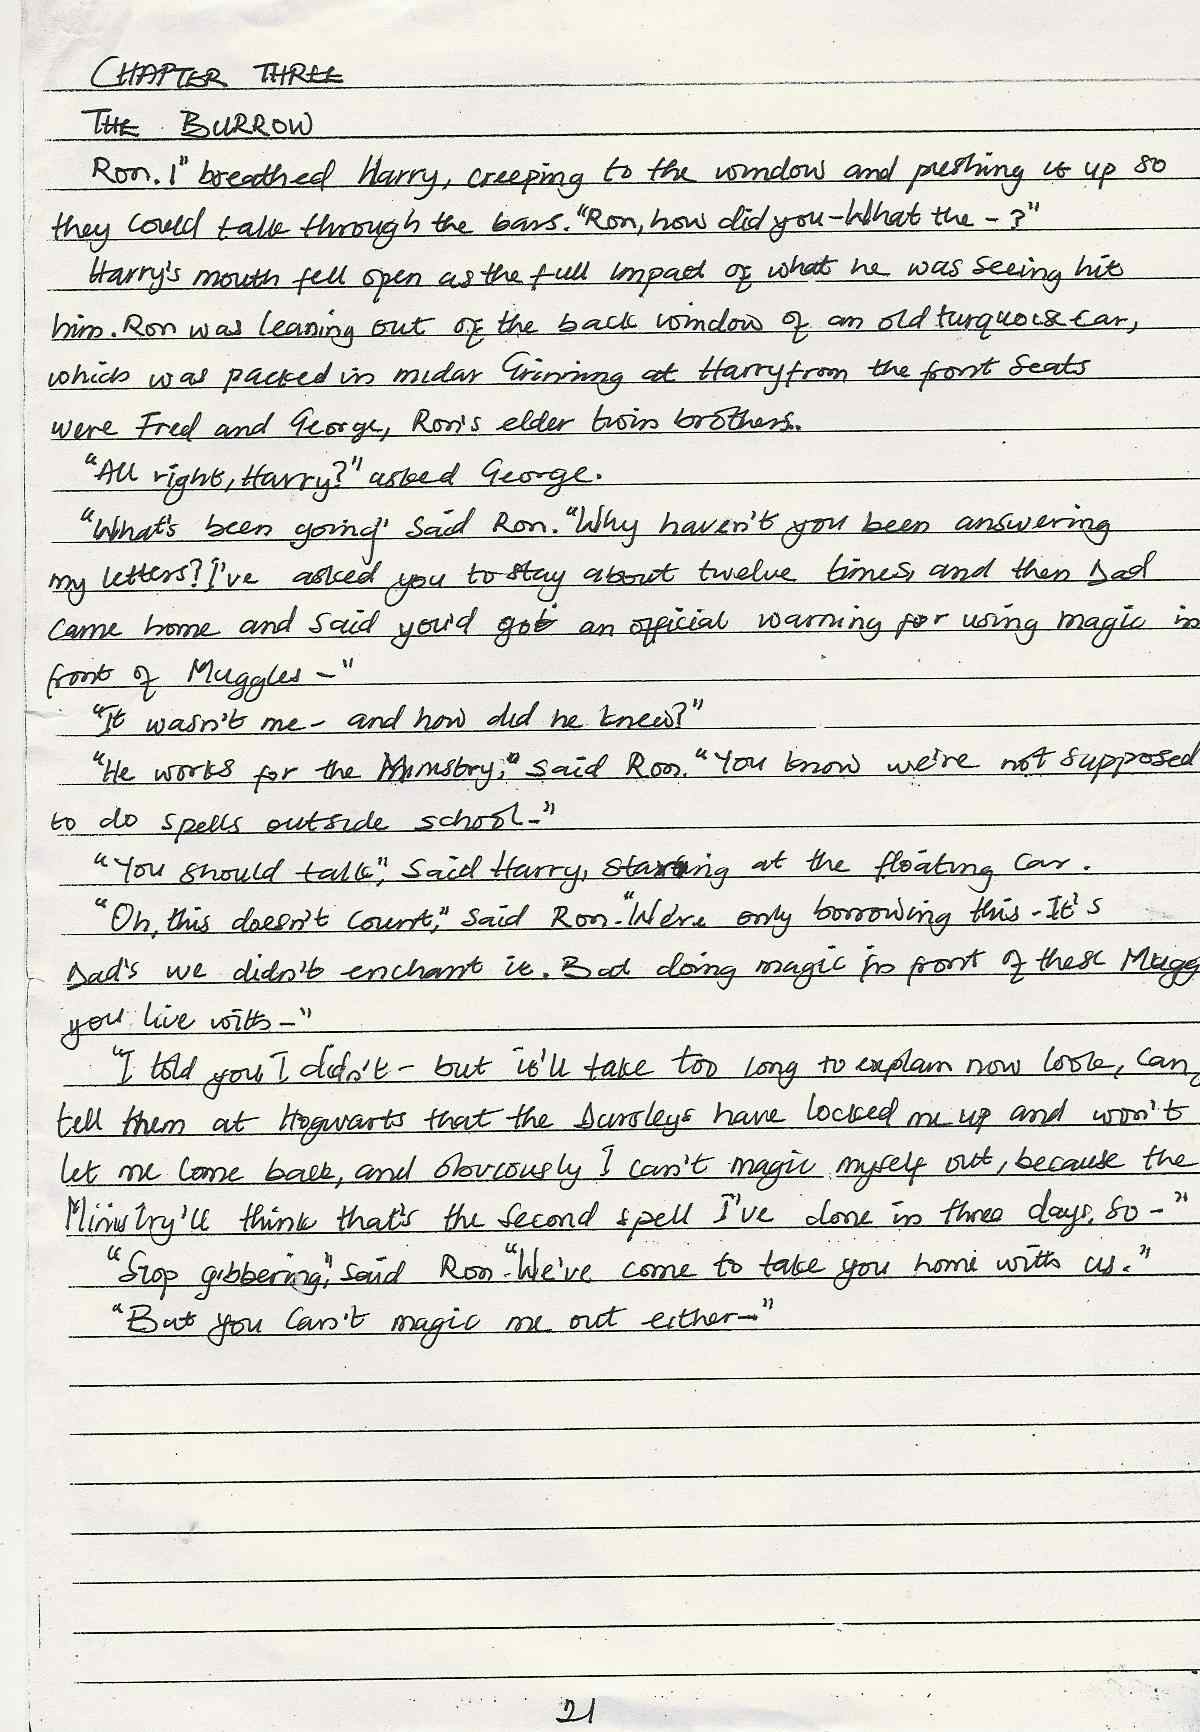 CHAPTER THREE
THE BURROW
Ron. !" breathed Harry, creeping to the window and pushing it up so
they could talk through the bars. "Ron, how did you - What the - ?"
Harry's mouth fell open as the full impact of what he was seeing hit
him. Ron was leaning out of the back window of an old turquoise car,
which was packed in midar Grinning at Harry from the front seats
were Fred and George, Ron's elder twin brothers.
"All right, Harry?" asked George.
"What's been going" said Ron. "Why haven't you been answering
my letters? I've asked you to stay about twelve times, and then Dad
came home and said you'd got an official warning for using magic in
front of Muggles -"
"It wasn't me - and how did he knew?"
"He works for the Minisbry," said Ron. "You know we're not supposed
to do spells outside school -"
"You should talk", said Harry, staring at the floating car.
"Oh, this doesn't count," said Ron. "We're only borrowing this - It's
Dad's we didn't enchant it. But doing magic in front of these Mugg
you live with -"
"I told you, I didn't - but it'll take too long to explain now look, can
tell them at Hogwarts that the Dursleys have locked me up and won't
let me come back, and obviously I can't magic myself out, because the
Ministry'll think that's the second spell I've done in three days. So -"
"Stop gibbering," said Ron. "We've come to take you home with us."
"But you can't magic me out either -"
21